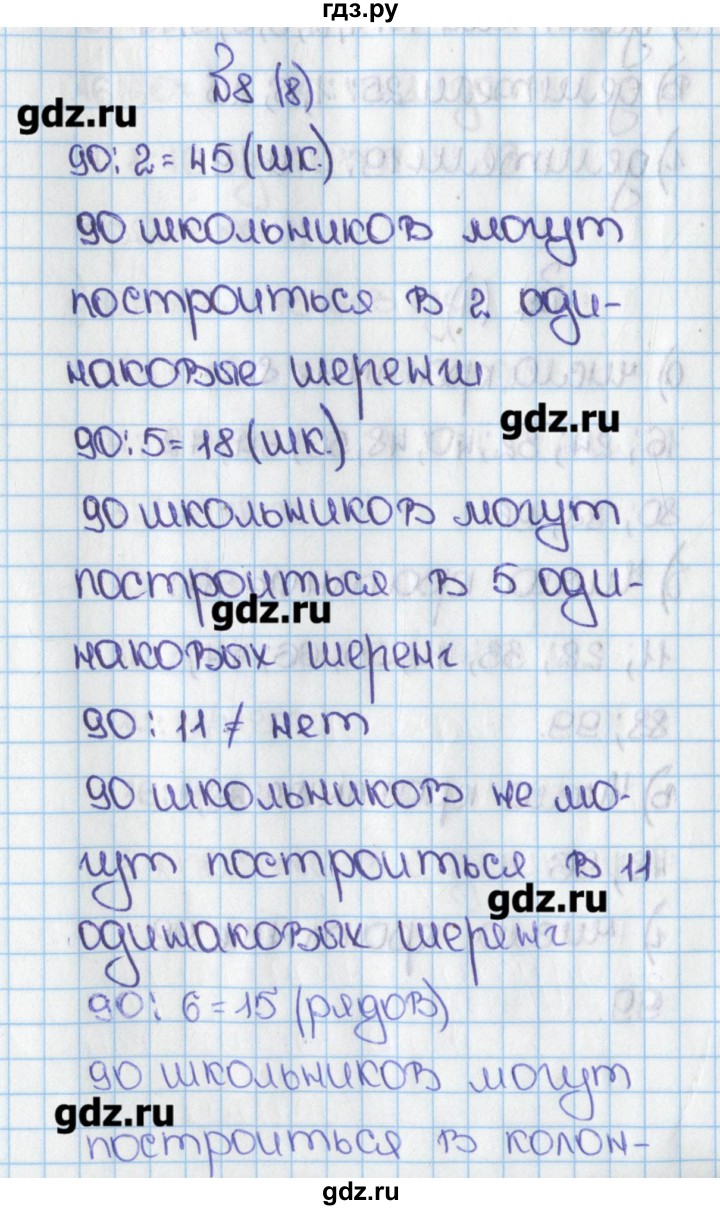 гдз.ру
№8 (8)
gdz.ru
90:2=45(шк.)
90 школьников могут
построиться в 2 оди-
наковые шеренги
gdz.ru
90:5=18(шк.)
90 школьников могут
построиться в 5 оди-
gdz.ru
наковых шеренг
90:11≠ нет
90 школьников не мо-
гут построиться в 11
gdz.ru
одинаковых шеренг
90: 6=15 (рядов)
90 школьников могут
gdz.ru
построиться в колон-
gdz.ru